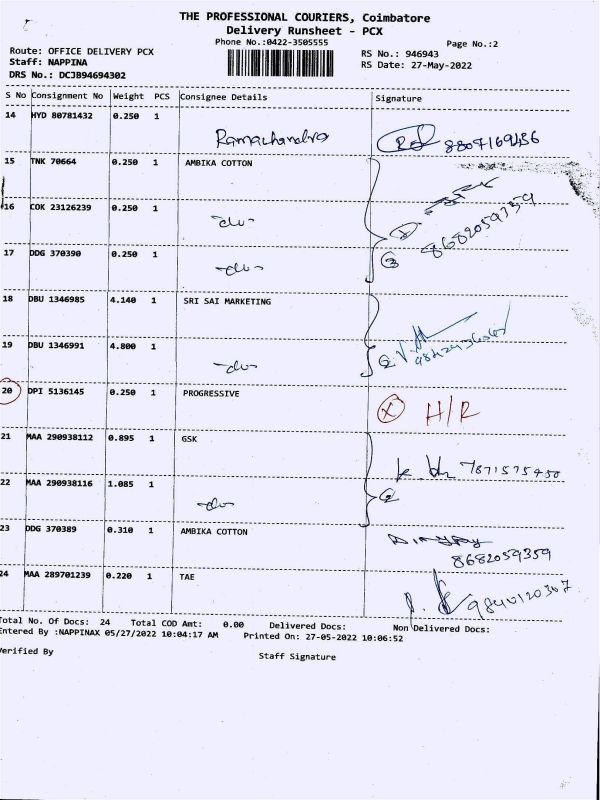 THE PROFESSIONAL COURIERS, Coimbatore
Delivery Runsheet - PCX
Phone No.:0422-3505555
Page No.:2
Route: OFFICE DELIVERY PCX
RS No.: 946943
Staff: NAPPINA
RS Date: 27-May-2022
DRS No.: DCJB94694302
S No Consignment No Weight PCS Consignee Details Signature
14 HYD 80781432 0.250 1
Ramachandra 8807169436
15 TNK 70664 0.250 1 AMBIKA COTTON
16 COK 23126239 0.250 1
-do-
8682059359
17 DDG 370390 0.250 1
-do- 3
18 DBU 1346985 4.140 1 SRI SAI MARKETING
19 DBU 1346991 4.800 1
-do- 2
20 DPI 5136145 0.250 1 PROGRESSIVE
X H/R
21 MAA 290938112 0.895 1 GSK
7871575450
22 MAA 290938116 1.085 1
-do- 2
23 DDG 370389 0.310 1 AMBIKA COTTON
8682059359
24 MAA 289701239 0.220 1 TAE
9840120307
Total No. Of Docs: 24 Total COD Amt: 0.00 Delivered Docs: Non Delivered Docs:
Entered By :NAPPINAX 05/27/2022 10:04:17 AM Printed On: 27-05-2022 10:06:52
Verified By Staff Signature